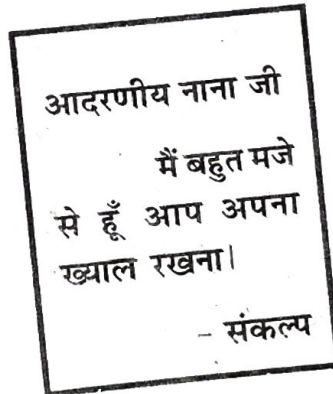 आदरणीय नाना जी
मैं बहुत मजे
से हूँ आप अपना
ख्याल रखना।
- संकल्प